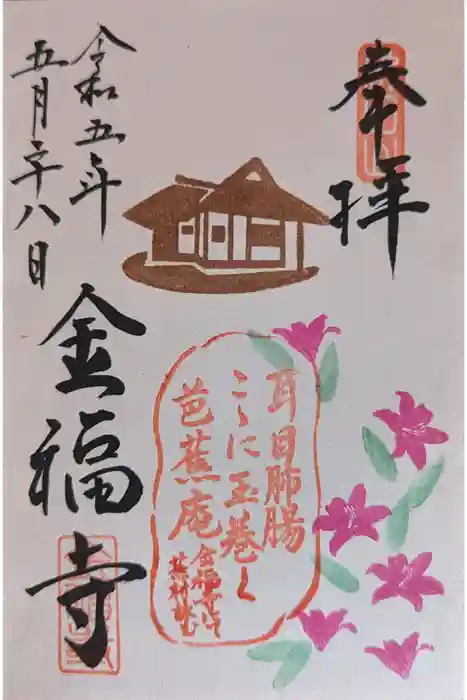 奉拝
耳目肺腸
こゝに玉巻く
芭蕉庵
金福寺にて
蕪村
令和五年
五月二十八日
金福寺